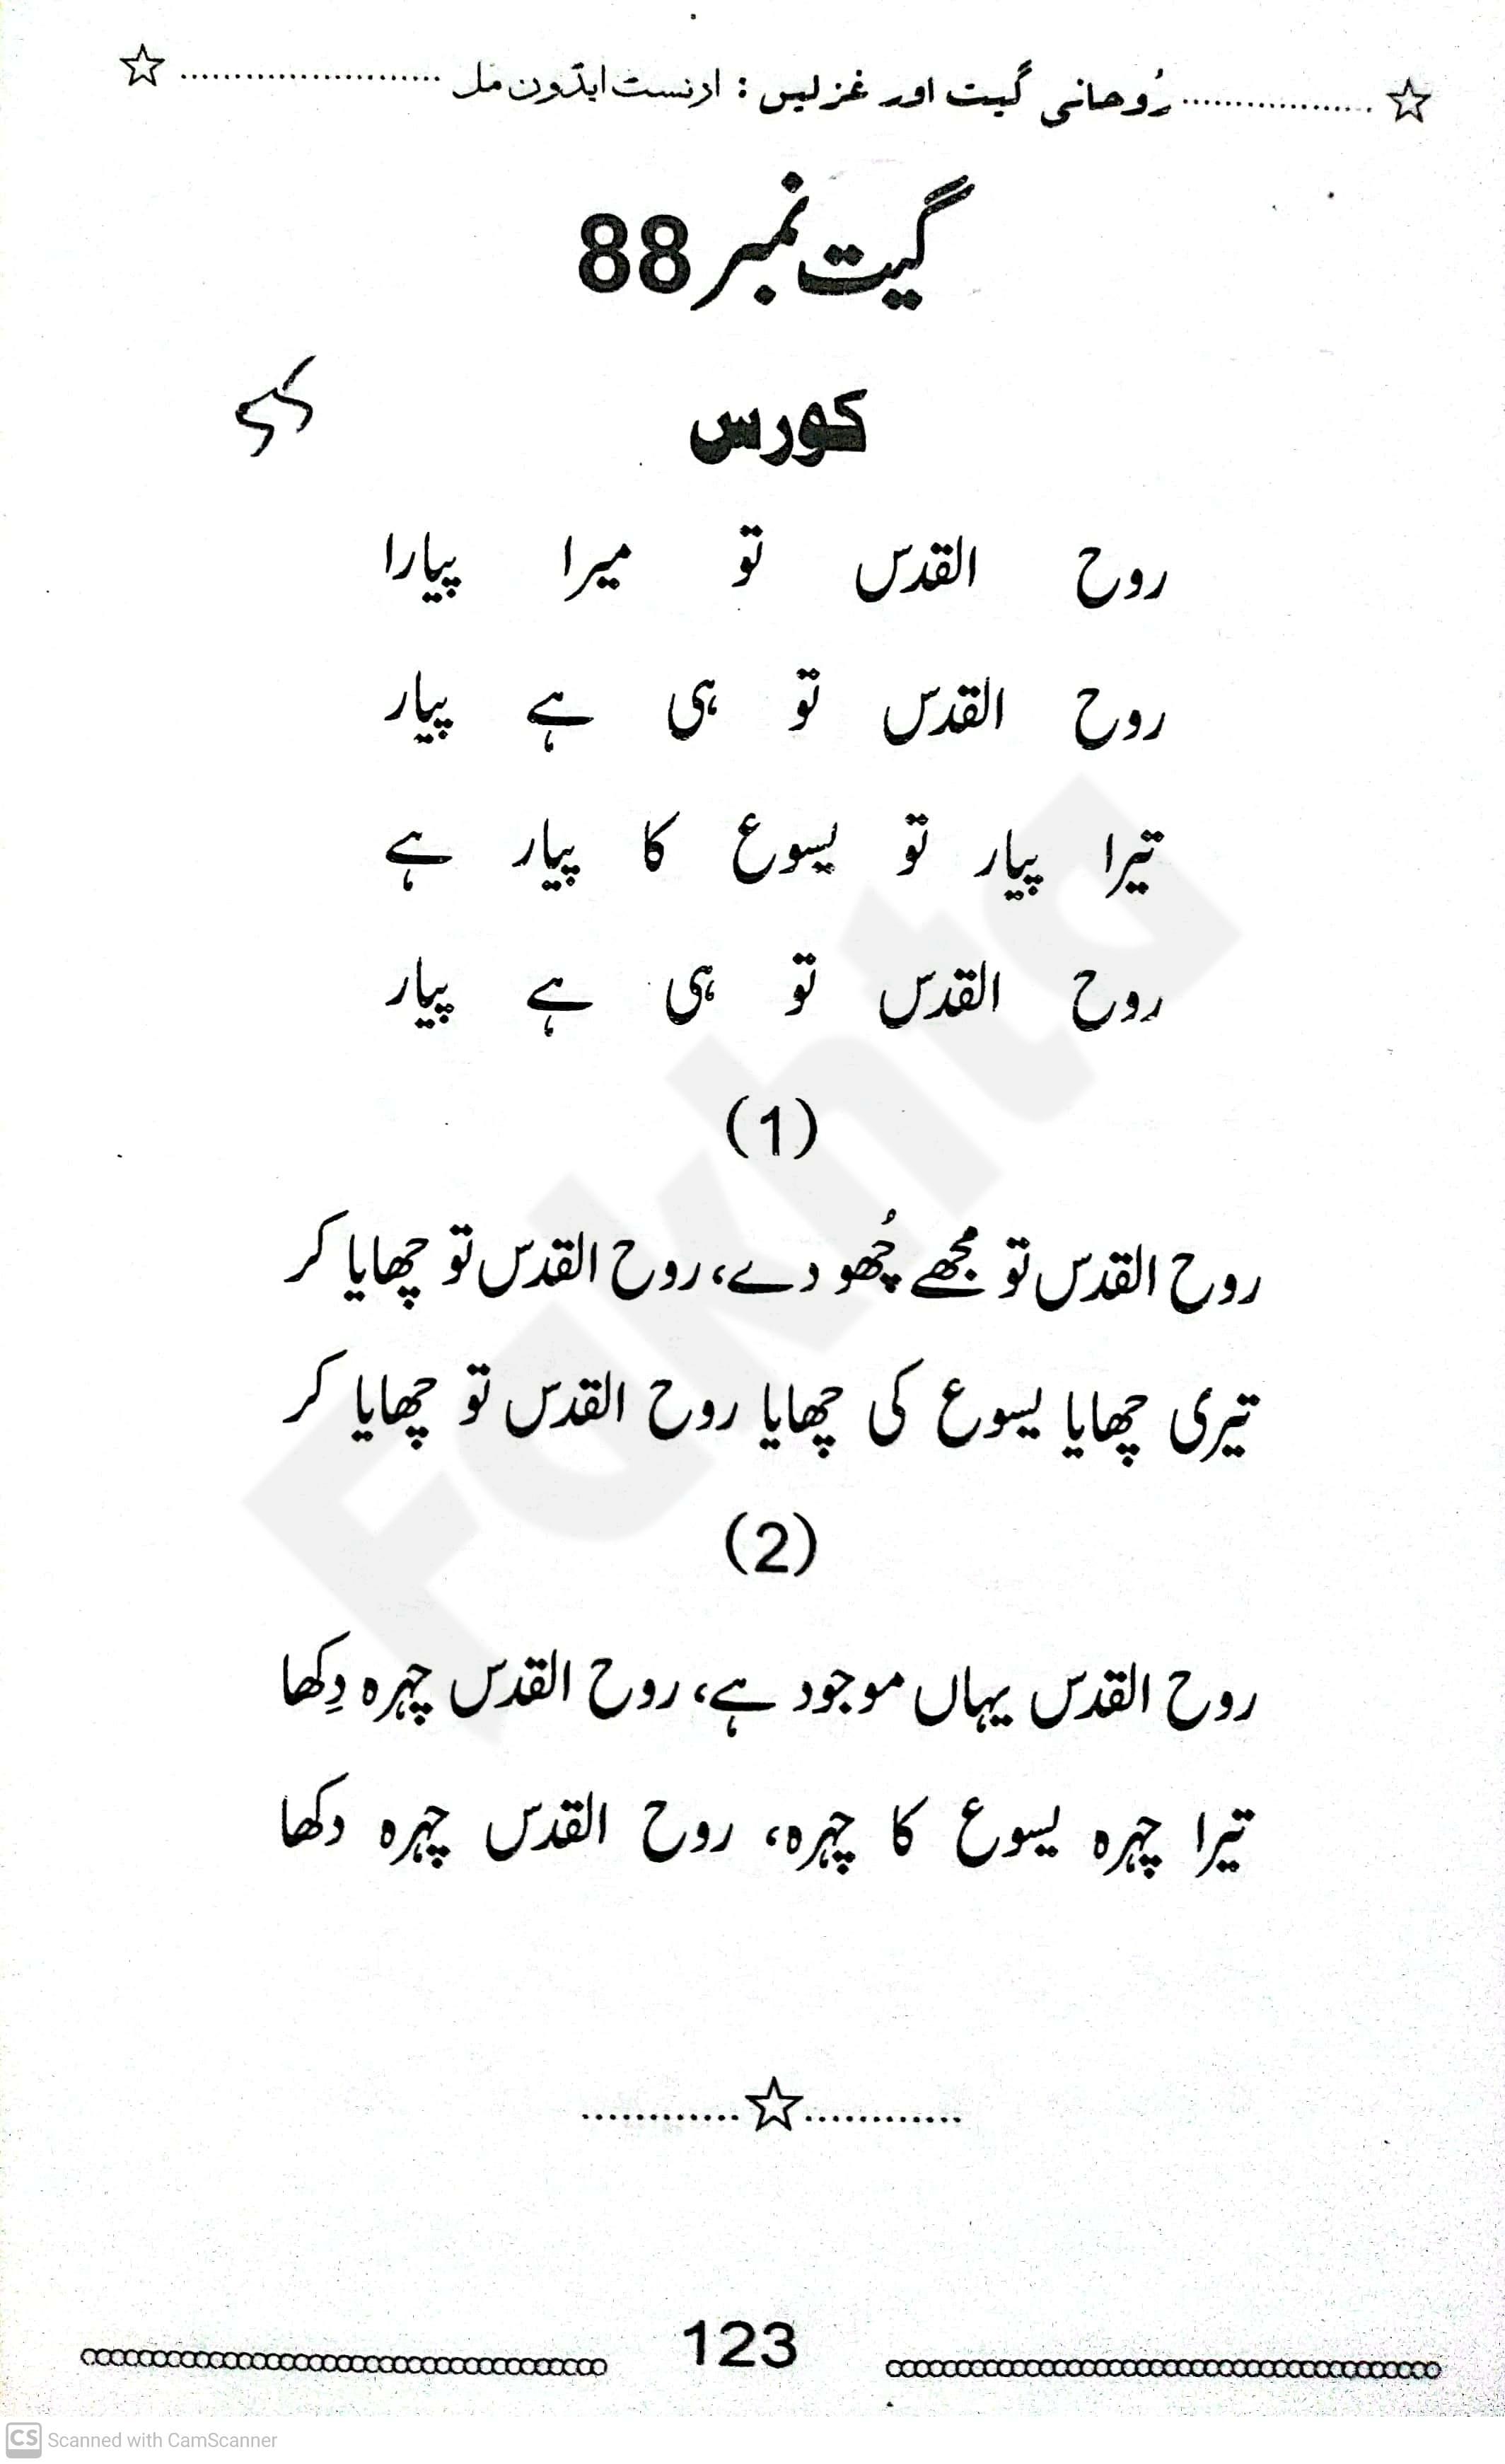 رُوحانی گیت اور غزلیں : ارنسٹ ایڈون مل
گیت نمبر 88
کورس
روح القدس تو میرا پیارا
روح القدس تو ہی ہے پیار
تیرا پیار تو یسوع کا پیار ہے
روح القدس تو ہی ہے پیار
(1)
روح القدس تو مجھے چُھو دے، روح القدس تو چھایا کر
تیری چھایا یسوع کی چھایا روح القدس تو چھایا کر
(2)
روح القدس یہاں موجود ہے، روح القدس چہرہ دِکھا
تیرا چہرہ یسوع کا چہرہ، روح القدس چہرہ دکھا
123
Fakhta
CS Scanned with CamScanner